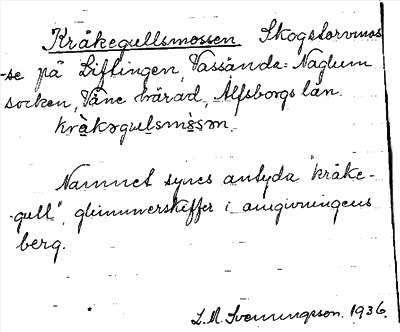 Kråkegullsmossen Skogstorvmos
-se på Liflingen, Vassända-Naglum
socken, Väne härad, Älfsborgs län.
kràkəgulsmòsən.
Namnet synes antyda "kråke-
-gull", glimmerskiffer i omgivningens
berg.
L.M. Svenungsson. 1936.